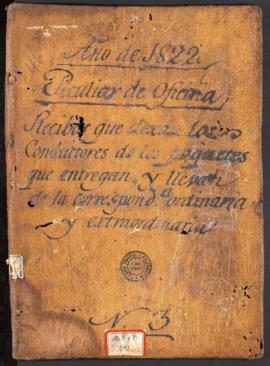 Año de 1822.
Peculiar de Oficina
Recibos que dexan los
Conductores de los paquetes
que entregan, y llevan
de la correspond.ª ordinaria
y extraordinaria
N. 3